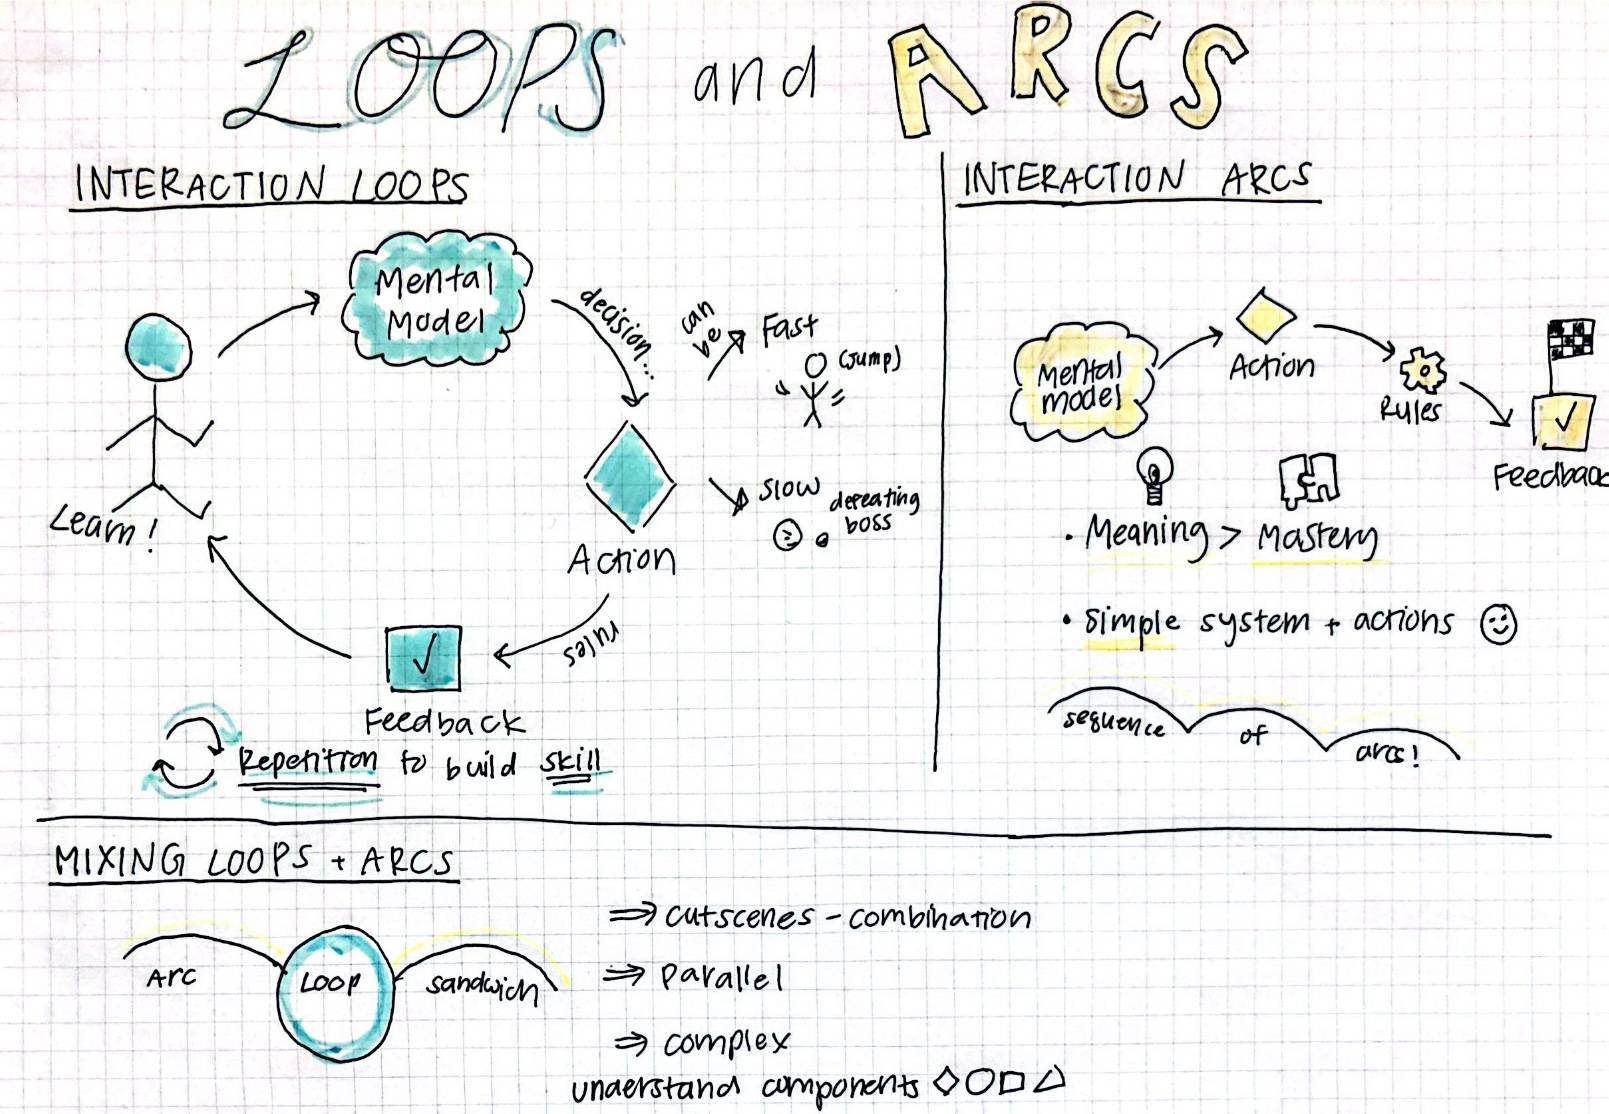 LOOPS and ARCS
INTERACTION LOOPS
Mental
Model
decision...
can
be
Fast
(Jump)
slow
defeating
boss
Action
rules
Feedback
Learn!
Repetition to build skill
INTERACTION ARCS
Mental
model
Action
Rules
Feedback
• Meaning > Mastery
• simple system + actions
sequence of arcs!
MIXING LOOPS + ARCS
Arc Loop sandwich
⇒ cutscenes - combination
⇒ parallel
⇒ complex
understand components